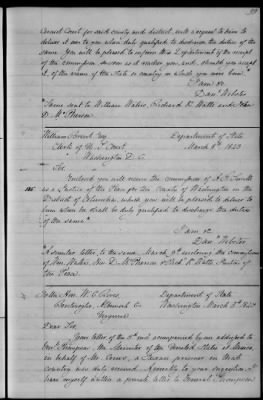 Circuit Court for said county and district, with a request to him to
deliver it to you when duly qualified to discharge the duties of the
same. You will be pleased to inform this Department of the receipt
of the commission as soon as it reaches you, and, should you accept
it, of the name of the State or country in which you were born."
I am &c
Danl Webster
"Same sent to William Waters, Richard R. Watts and John
D. McPherson
William Brent Esq
Department of State
Clerk of the Court
March 8th 1843
Washington D.C.
Sir,
Enclosed you will receive the commission of
as a Justice of the Peace for the County of Washington in the
District of Columbia, which you will be pleased to deliver to
him when he shall be duly qualified to discharge the duties
of the same."
I am &c
Danl Webster
"A similar letter, to the same, March 9th enclosing the commissions
of Wm. Waters, Jno D. McPherson & Richd R Watts Justices of
the Peace
To the Hon. W. C. Rives,
Department of State
Albemarle Co
Washington March 1843
Virginia
Dear Sir,
Your letter of the 5th inst accompanied by one addressed to
Genl Thompson, the Minister of the United States at Mexico,
in behalf of Mr a Texan prisoner in that
country, was duly received. Agreeably to your suggestion, I
have myself written a private letter to General Thompson